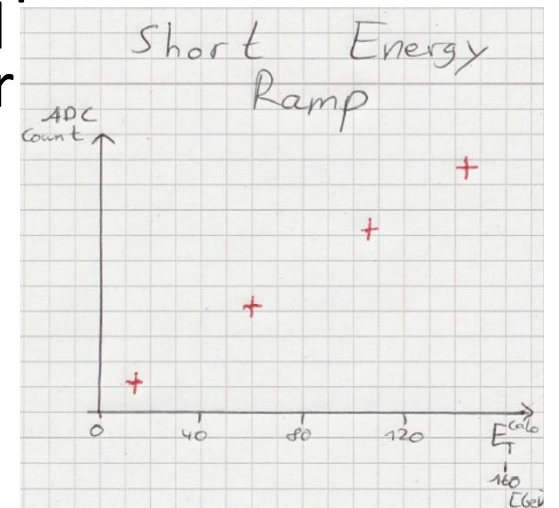 Short Energy
Ramp
ADC
Count
0 40 80 120 E_T^calo
160
[GeV